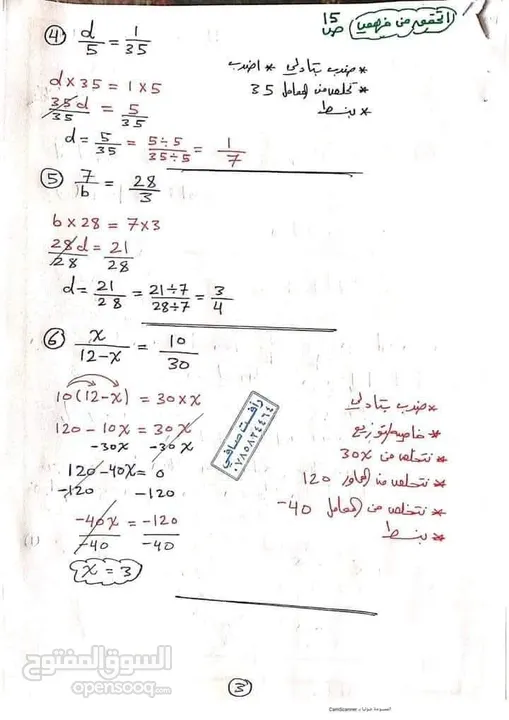 اتحقق من فهمي ص 15
④ d/5 = 1/35
* ضرب تبادلي * اضرب
* نتخلص من المعامل 35
* بسط
d × 35 = 1 × 5
35d/35 = 5/35
d = 5/35 = 5÷5/35÷5 = 1/7
⑤ 7/b = 28/3
b × 28 = 7×3
28d/28 = 21/28
d = 21/28 = 21÷7/28÷7 = 3/4
⑥ x/12-x = 10/30
10(12-x) = 30×x
120 - 10x = 30x
-30x -30x
120 - 40x = 0
-120 -120
-40x/-40 = -120/-40
x = 3
* ضرب تبادلي
* خاصية توزيع
* نتخلص من 30x
* نتخلص من المجاور 120
* نتخلص من المعامل -40
* بسط
رأفت صافي
٠٧٨٥٨٢٤٤٦٤
(1)
السوق المفتوح
opensooq.com
3
CamScanner